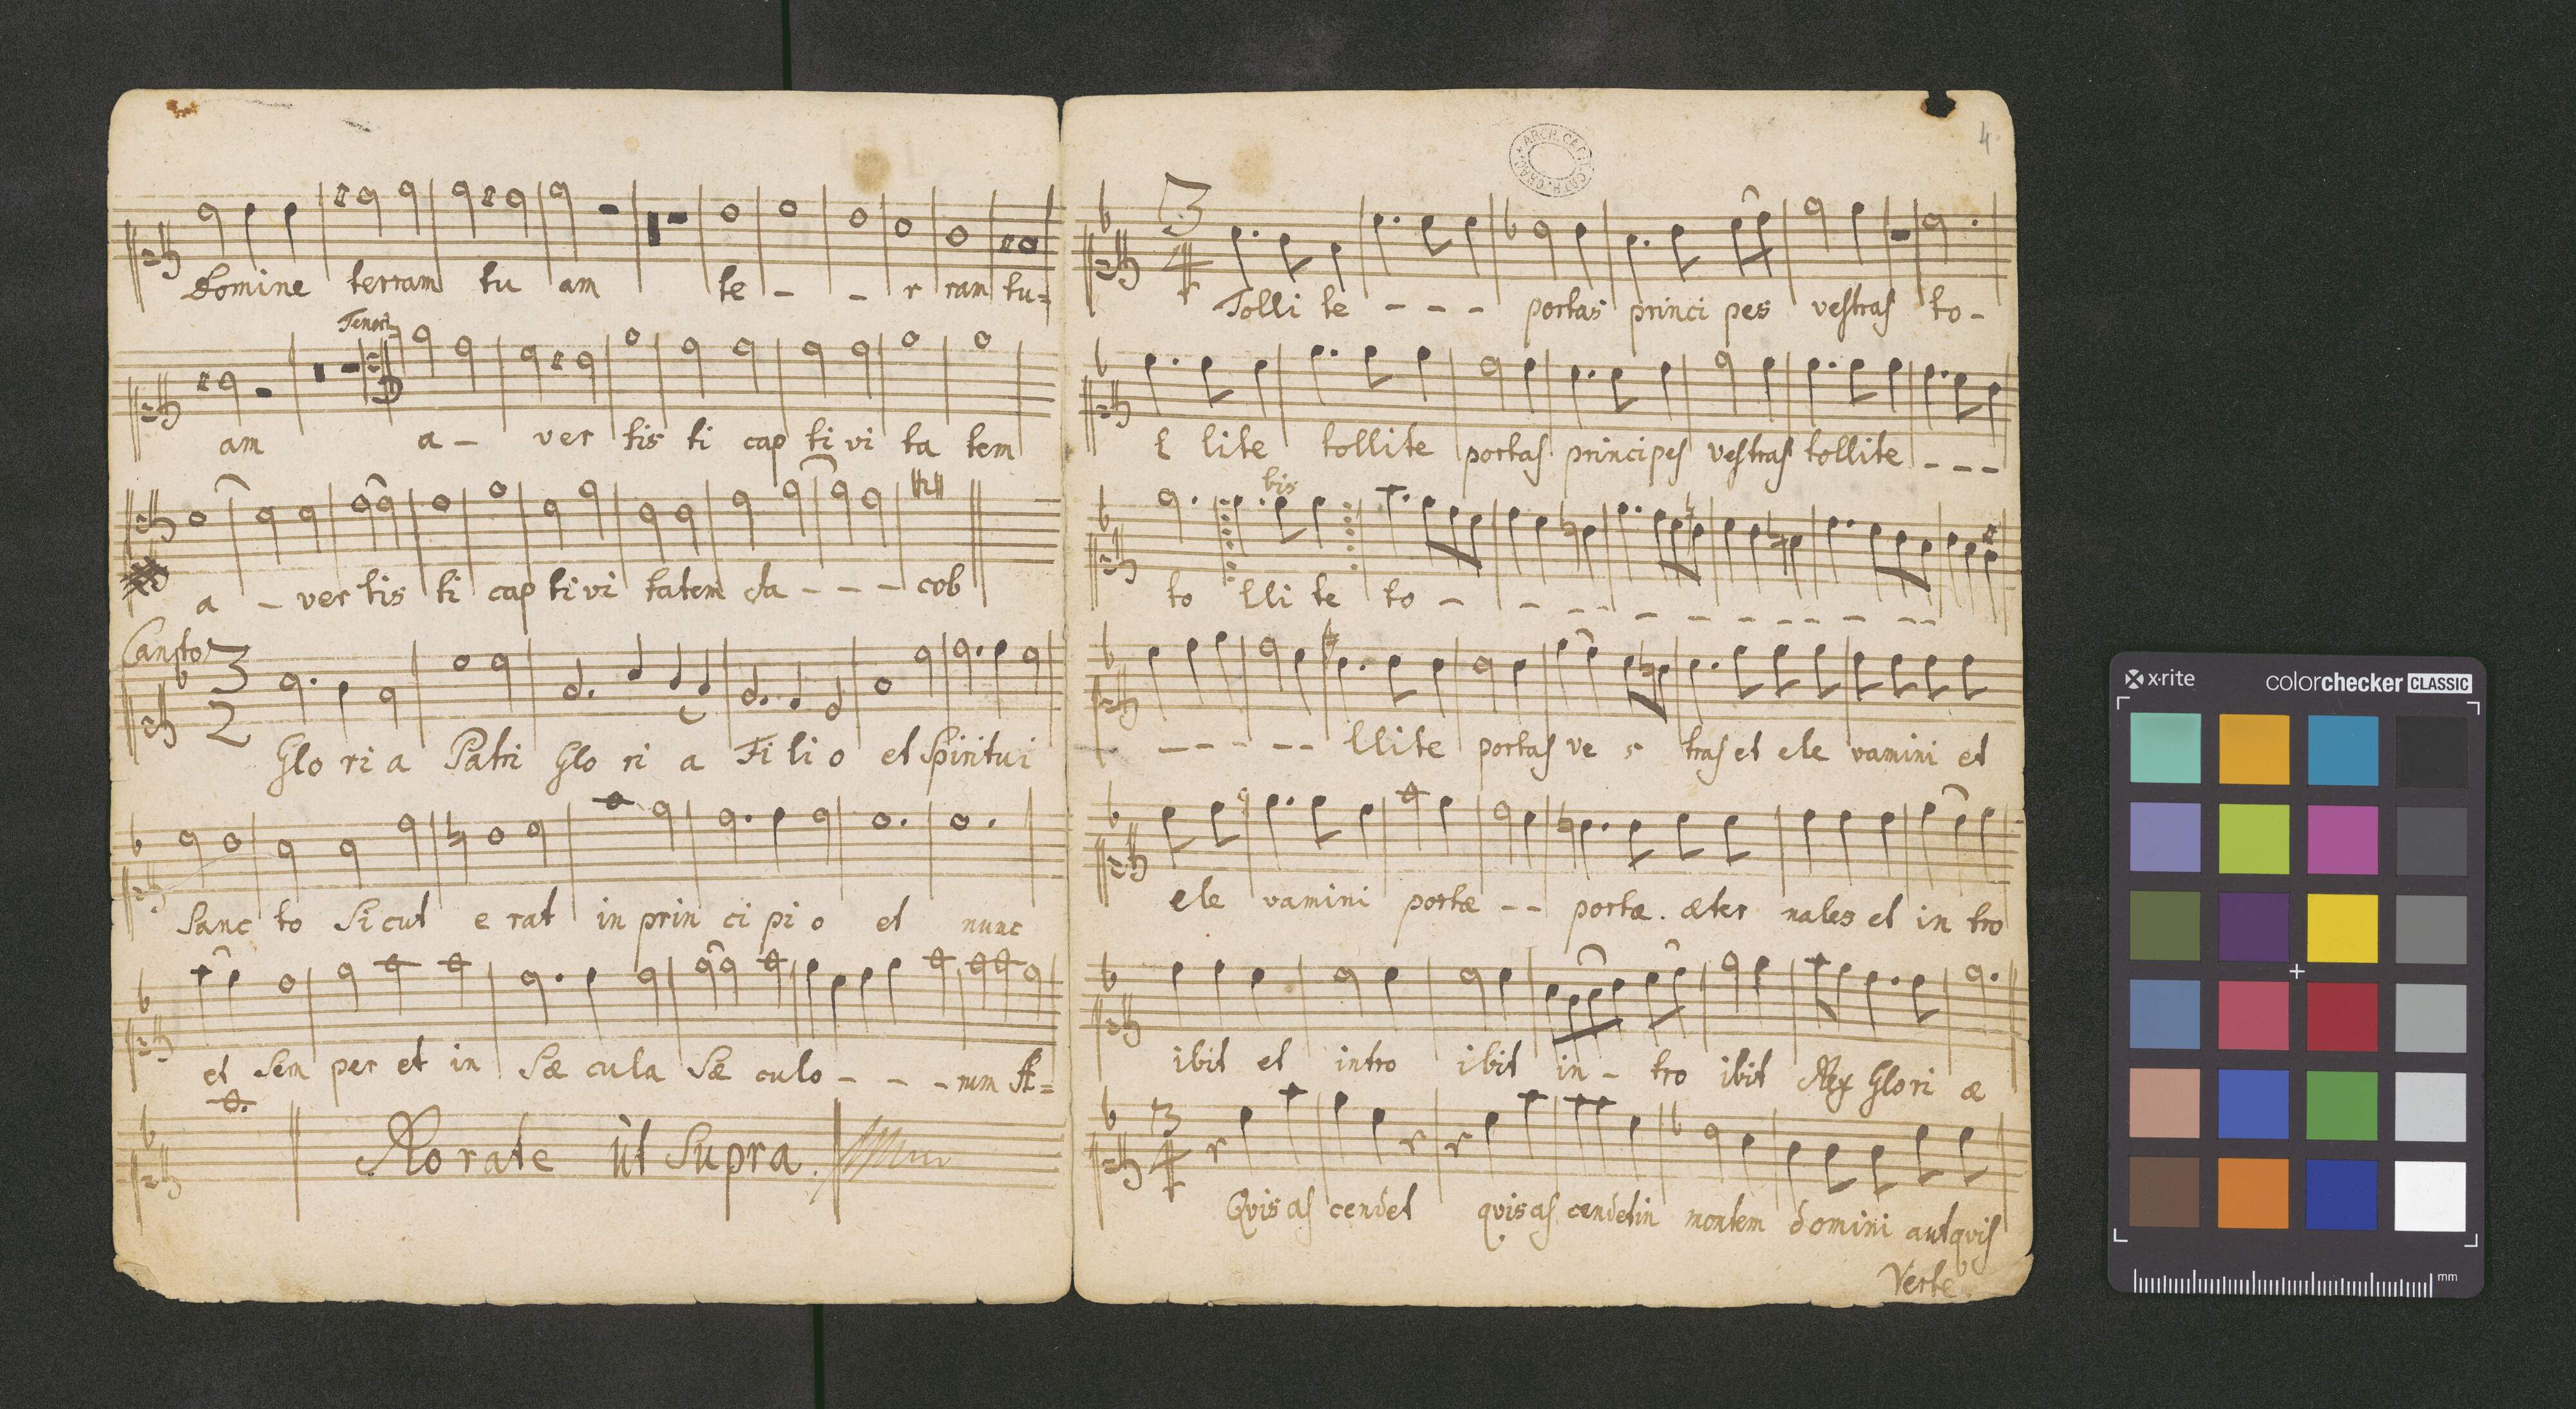 Domine terram tu am te - - r ram tu=
Tenor
am a - ver tis ti cap ti vi ta tem
a - ver tis ti cap ti vi tatem Ja - - - cob
Canto
3 2
Glo ri a Patri Glo ri a Fi li o et Spiritui
Sanc to Si cut e rat in prin ci pi o et nunc
et Sem per et in Sæ cula Sæ culo - - - rum A=
Rorate ùt Supra.
4.
3 4
Tolli te - - - portas princi pes vestras to-
l lite tollite portas principes vestras tollite - - -
bis
to lli te to - - - - - - - - - - - -
- - - - - llite portas ve s tras et ele vamini et
ele vamini portæ - - portæ. æter nales et in tro
ibit et intro ibit in - tro ibit Rex Glori æ
3 4
Qvis as cendet qvis as cendet in montem domini aut qvis
Verte
x-rite colorchecker CLASSIC
mm